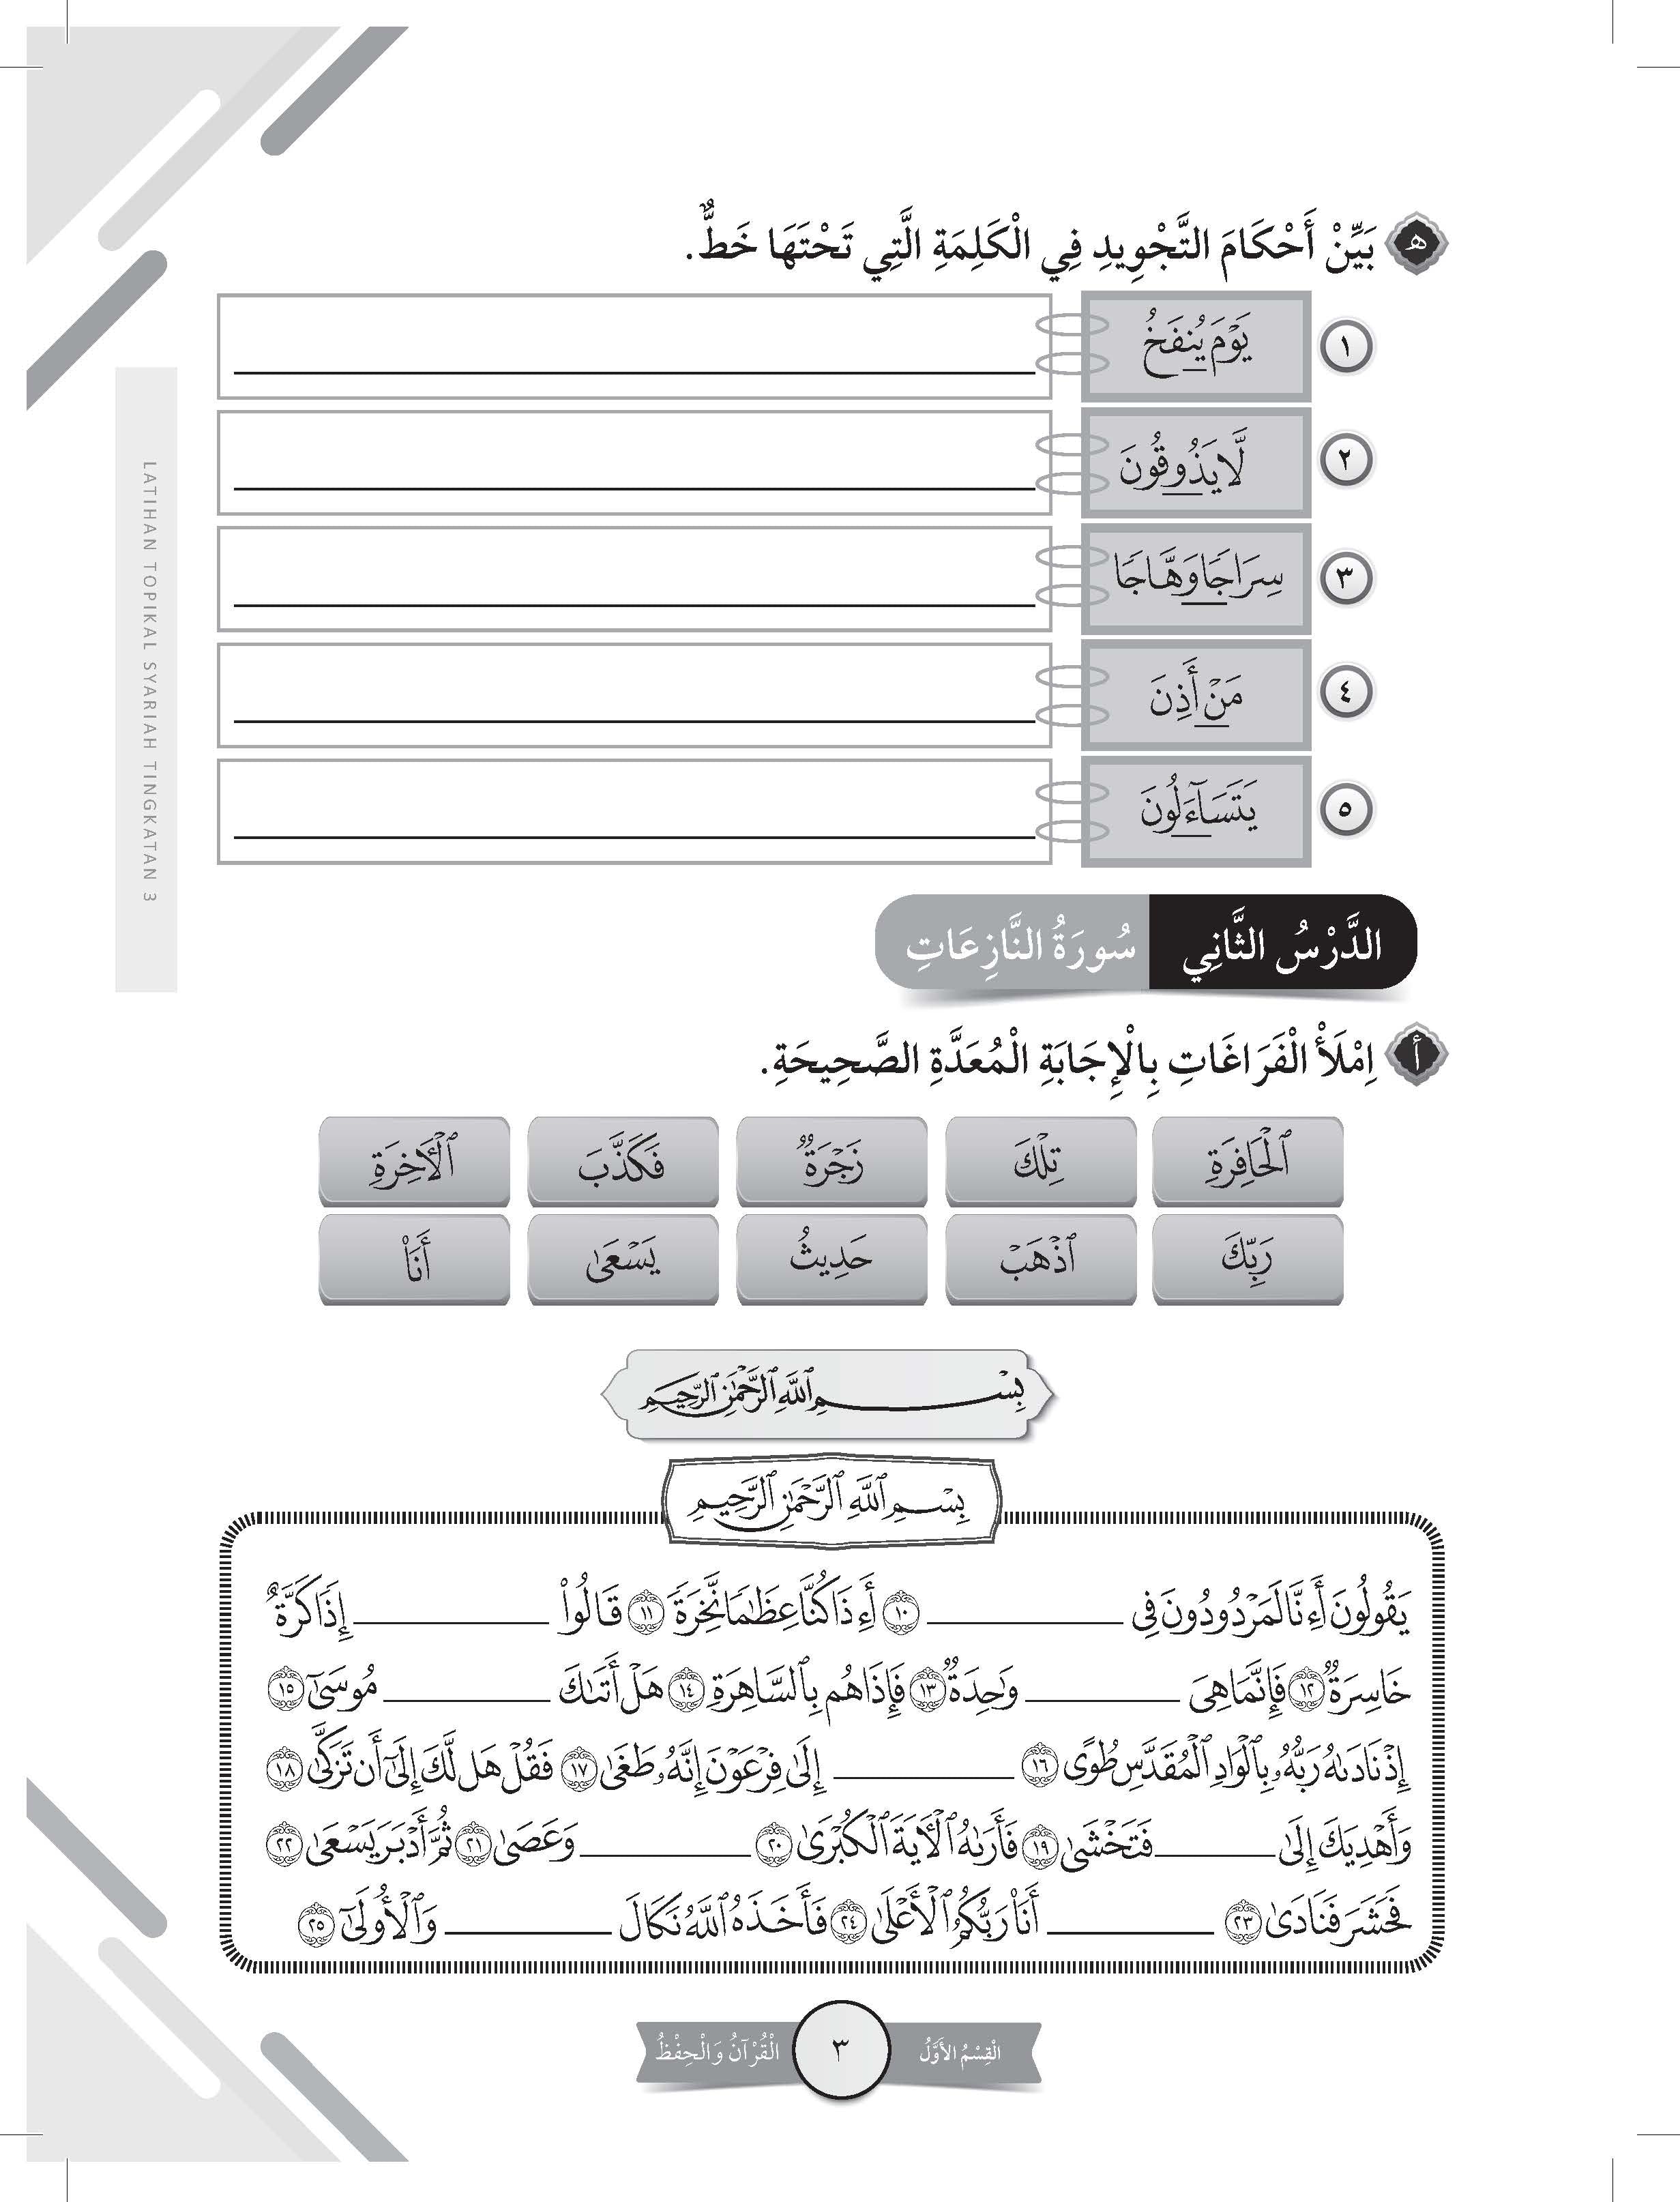 ه بَيِّنْ أَحْكَامَ التَّجْوِيدِ فِي الْكَلِمَةِ الَّتِي تَحْتَهَا خَطٌّ.
١ يَوْمَ يُنفَخُ
٢ لَّا يَذُوقُونَ
٣ سِرَاجًا وَهَّاجًا
٤ مَنْ أَذِنَ
٥ يَتَسَآءَلُونَ
LATIHAN TOPIKAL SYARIAH TINGKATAN 3
الدَّرْسُ الثَّانِي سُورَةُ النَّازِعَاتِ
أ اِمْلَأْ الْفَرَاغَاتِ بِالْإِجَابَةِ الْمُعَدَّةِ الصَّحِيحَةِ.
ٱلْحَافِرَةِ تِلْكَ زَجْرَةٌ فَكَذَّبَ ٱلْأَخِرَةِ
رَبِّكَ ٱذْهَبْ حَدِيثُ يَسْعَىٰ أَنَا۠
بِسْمِ ٱللَّهِ ٱلرَّحْمَٰنِ ٱلرَّحِيمِ
بِسْمِ ٱللَّهِ ٱلرَّحْمَٰنِ ٱلرَّحِيمِ
يَقُولُونَ أَءِنَّا لَمَرْدُودُونَ فِى ________ ١٠ أَءِذَا كُنَّا عِظَٰمًا نَّخِرَةً ١١ قَالُوا۟ ________ إِذًا كَرَّةٌ
خَاسِرَةٌ ١٢ فَإِنَّمَا هِىَ ________ وَٰحِدَةٌ ١٣ فَإِذَا هُم بِٱلسَّاهِرَةِ ١٤ هَلْ أَتَىٰكَ ________ مُوسَىٰٓ ١٥
إِذْ نَادَىٰهُ رَبُّهُۥ بِٱلْوَادِ ٱلْمُقَدَّسِ طُوًى ١٦ ________ إِلَىٰ فِرْعَوْنَ إِنَّهُۥ طَغَىٰ ١٧ فَقُلْ هَل لَّكَ إِلَىٰٓ أَن تَزَكَّىٰ ١٨
وَأَهْدِيَكَ إِلَىٰ ________ فَتَخْشَىٰ ١٩ فَأَرَىٰهُ ٱلْأَيَةَ ٱلْكُبْرَىٰ ٢٠ ________ وَعَصَىٰ ٢١ ثُمَّ أَدْبَرَ يَسْعَىٰ ٢٢
فَحَشَرَ فَنَادَىٰ ٢٣ ________ أَنَا۠ رَبُّكُمُ ٱلْأَعْلَىٰ ٢٤ فَأَخَذَهُ ٱللَّهُ نَكَالَ ________ وَٱلْأُولَىٰٓ ٢٥
الْقِسْمُ الأَوَّلُ ٣ الْقُرْآنُ وَالْحِفْظُ